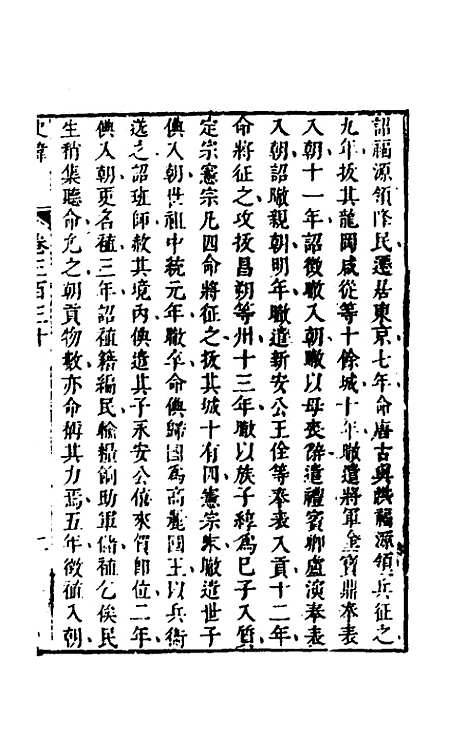 詔福源領降民遷居東京七年命唐古與洪福源領兵征之
九年拔其龍岡咸從等十餘城十年㬚遣將軍金寶鼎奉表
入朝十一年詔徵㬚入朝㬚以母喪辭遣禮賓卿盧演奉表
入朝詔㬚親朝明年㬚遣新安公王佺等奉表入貢十二年
命將征之攻拔昌朔等州十三年㬚以族子綧爲已子入質
定宗憲宗凡四命將征之拔其城十有四憲宗末㬚遣世子
倎入朝世祖中統元年㬚卒命倎歸國爲高麗國王以兵衛
送之詔班師赦其境內倎遣其子永安公僖來賀卽位二年
倎入朝更名禃三年詔禃籍編民輸糧餉助軍儲禃乞俟民
生稍集聽命允之朝貢物數亦命稱其力焉五年徵禃入朝
史緯
卷三百三十